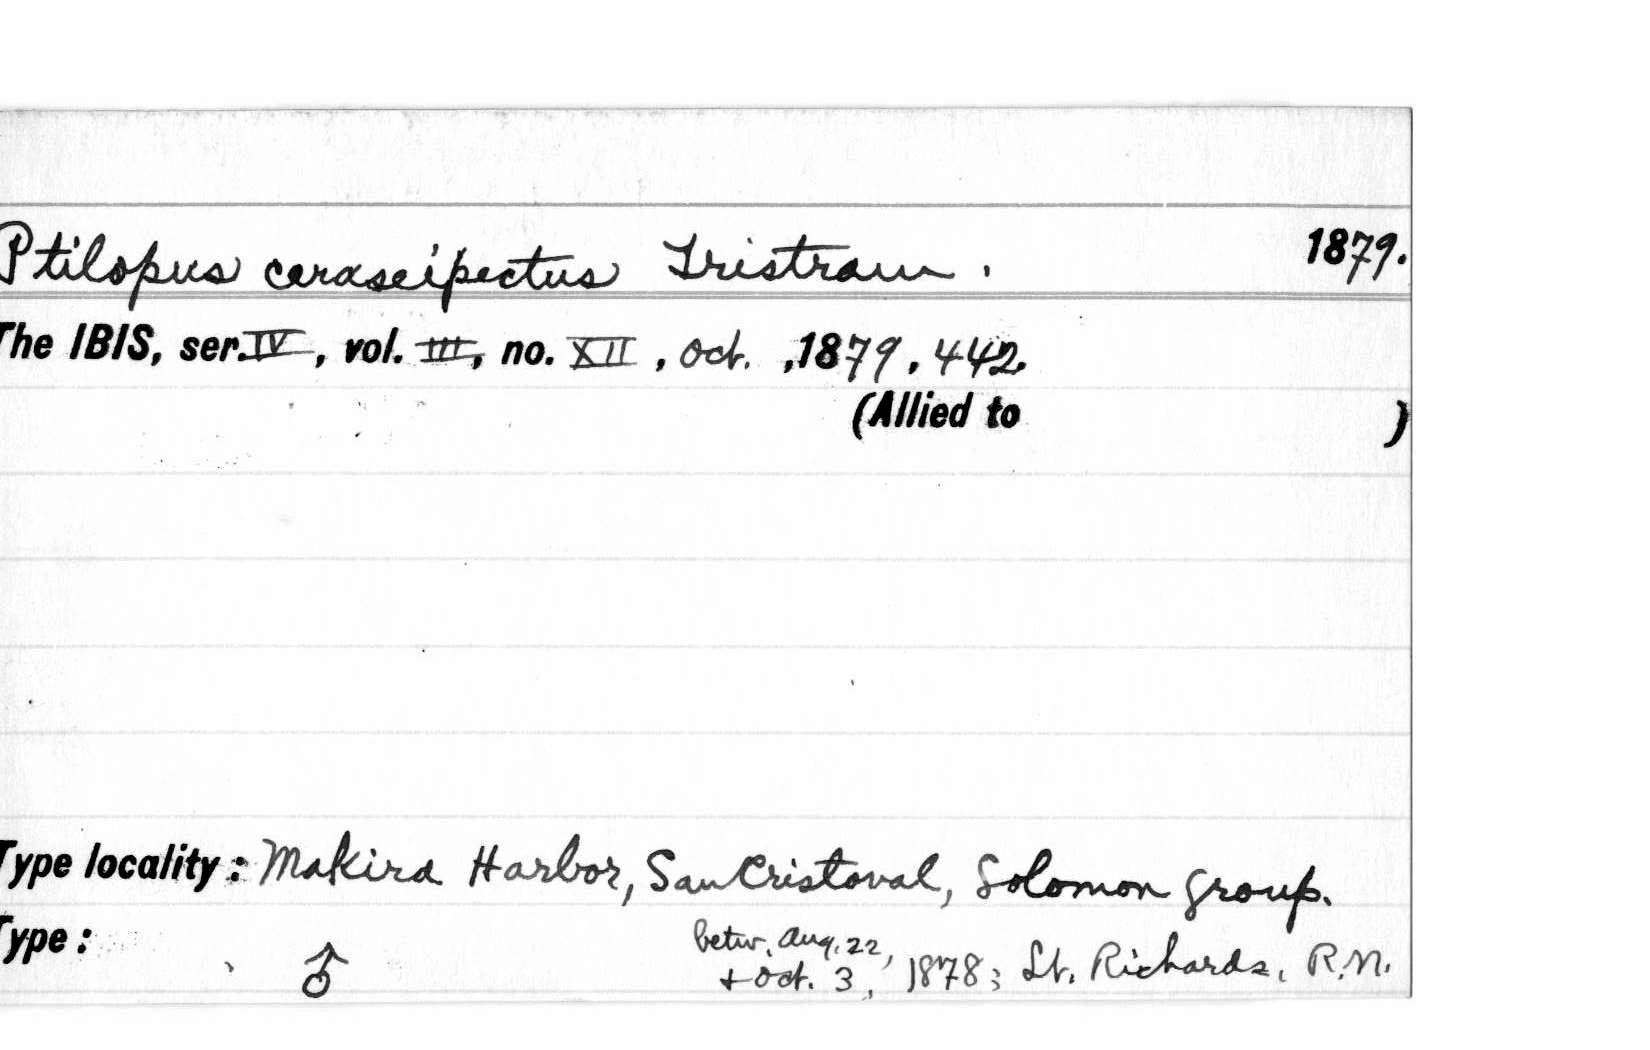 Ptilopus ceraseipectus Tristram. 1879.
The IBIS, ser. IV, vol. III, no. XII, Oct. ,1879, 442.
(Allied to )
Type locality: Makira Harbor, San Cristoval, Solomon group.
Type: ♂ betw. Aug. 22,
+ Oct. 3, 1878; Lt. Richards, R.N.